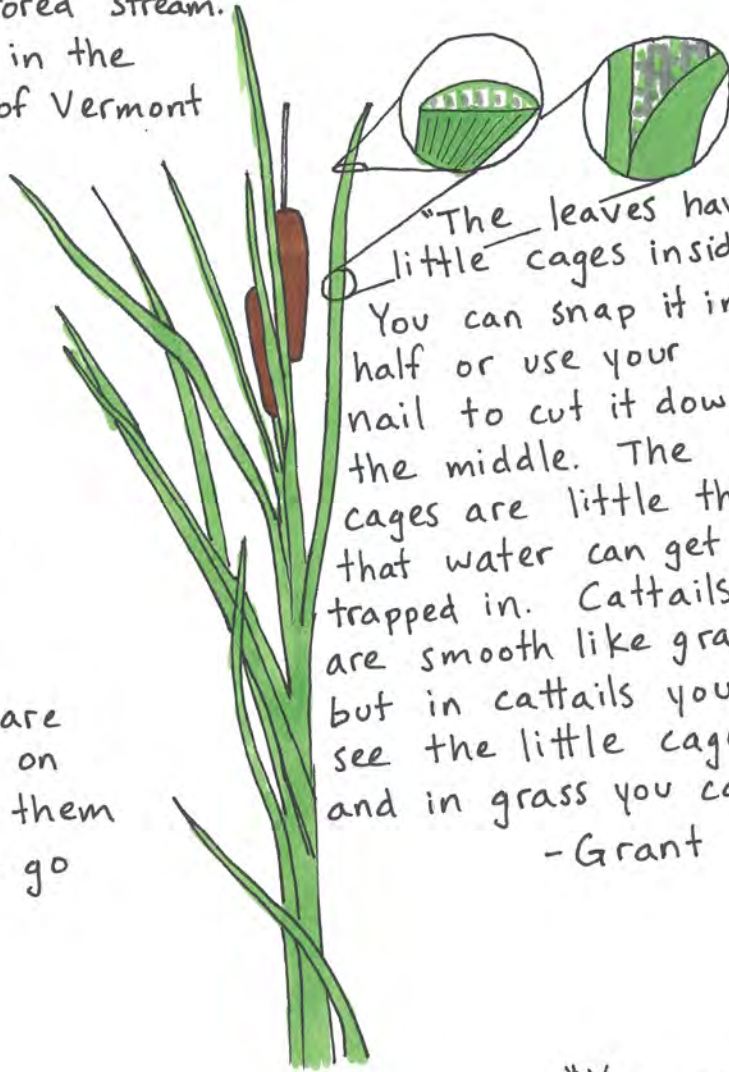 ored stream.
in the
of Vermont
"The leaves hav
little cages insid
You can snap it in
half or use your
nail to cut it dow
the middle. The
cages are little th
that water can get
trapped in. Cattails
are smooth like gra
but in cattails you
see the little cage
and in grass you ca
-Grant
are
on
them
go